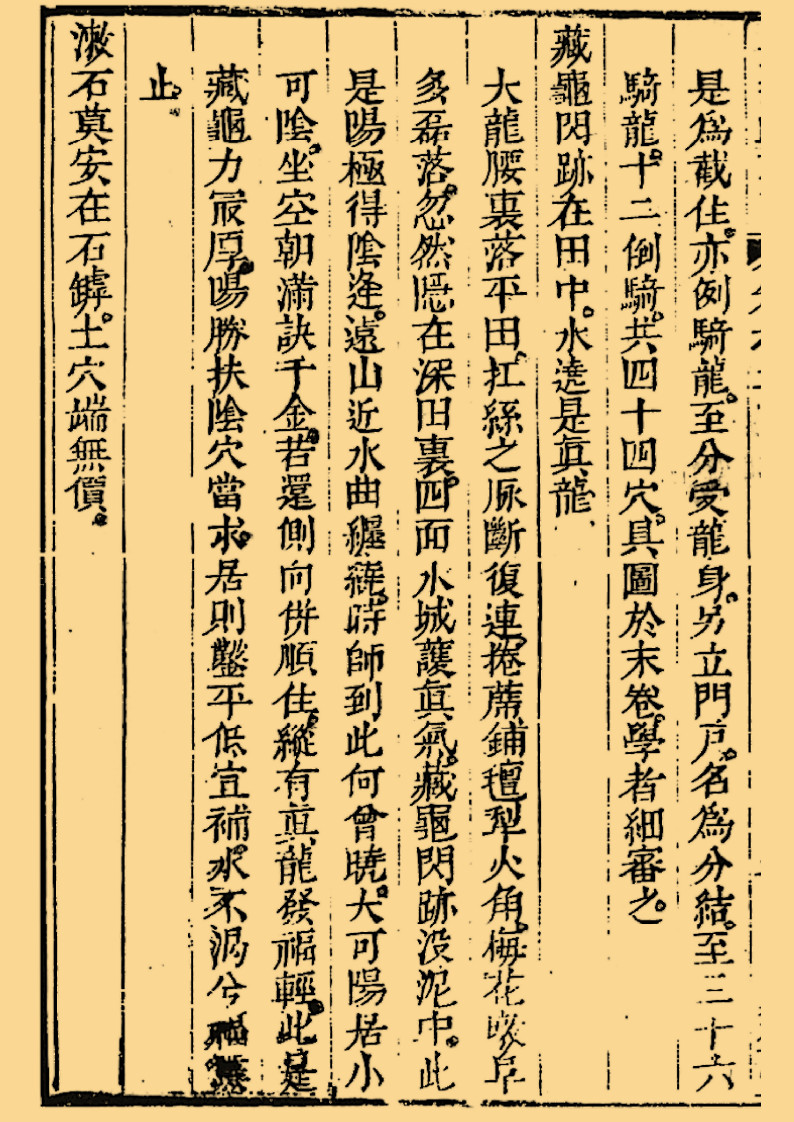 是為截住。亦倒騎龍。至分受龍身。另立門戶。名為分結。至三十六
騎龍。十二倒騎。共四十四穴。具圖於末卷。學者細審之。
藏龜閃跡在田中。水遶是真龍、
大龍腰裏落平田。扛絲之脈斷復連。捲蓆鋪氊犁火角。梅花墩阜
多磊落。忽然隱在深田裏。四面水城護真氣。藏龜閃跡沒泥中。此
是陽極得陰逢。遠山近水曲纒繞。時師到此何曾曉。大可陽居小
可陰。坐空朝滿訣千金。若還側向併順住。縱有真龍發福輕。此是
藏龜力最厚。陽勝扶陰穴當求。居則鑿平低宜補。水不涸兮福無
止。
漱石莫安在石罅。土穴端無價。